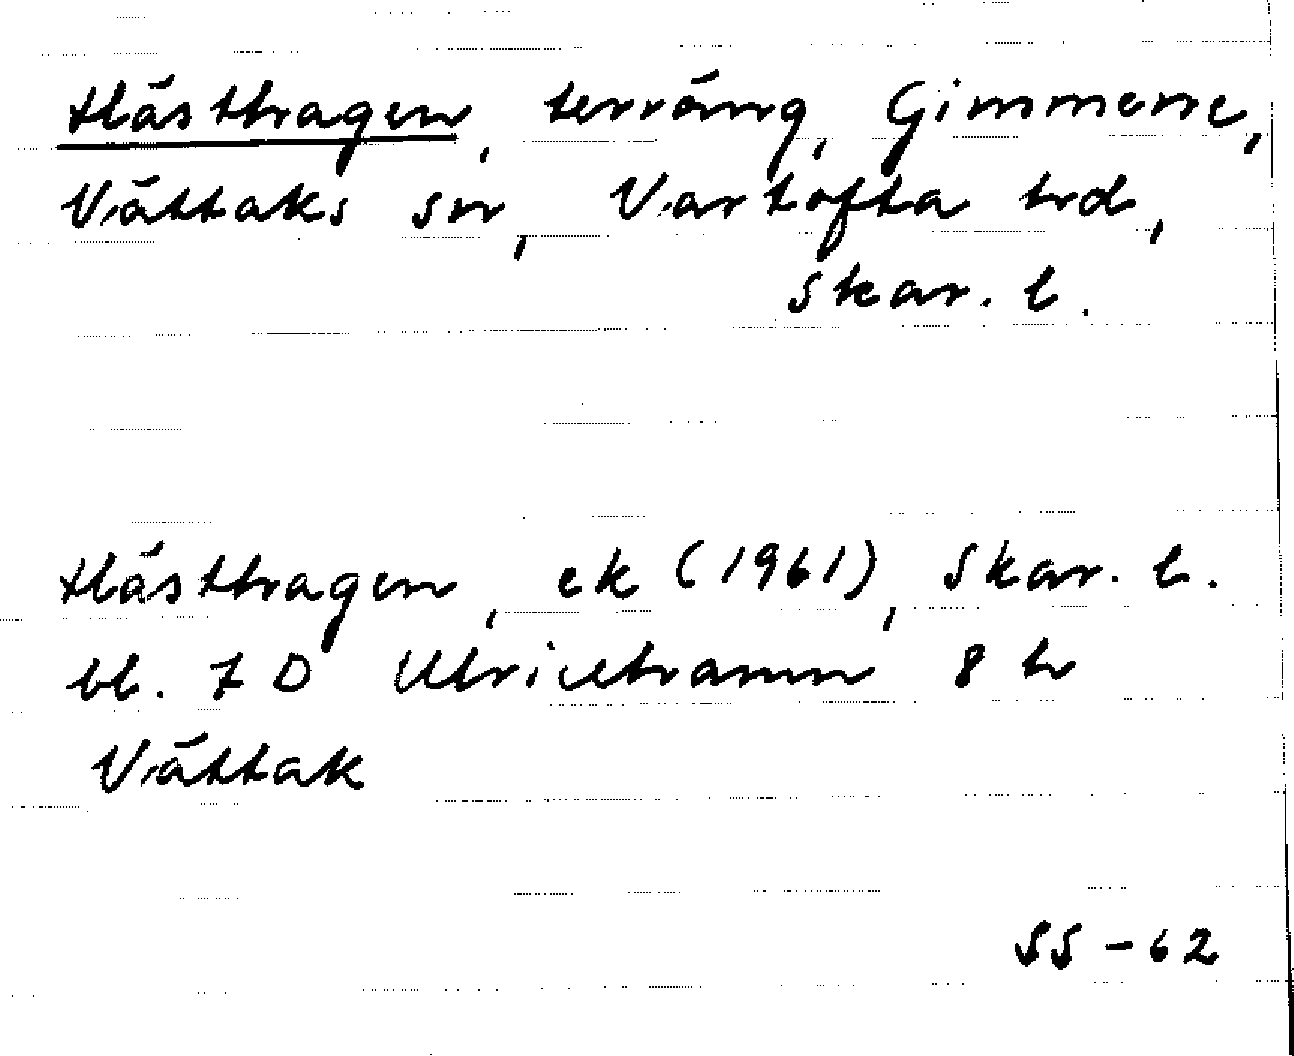 Hästhagen, terräng, Gimmene,
Vättaks sn, Vartofta hrd,
Skar. l.
Hästhagen, ek (1961), Skar. l.
bl. 7 D Ulricehamn 8 h
Vättak
SS - 62